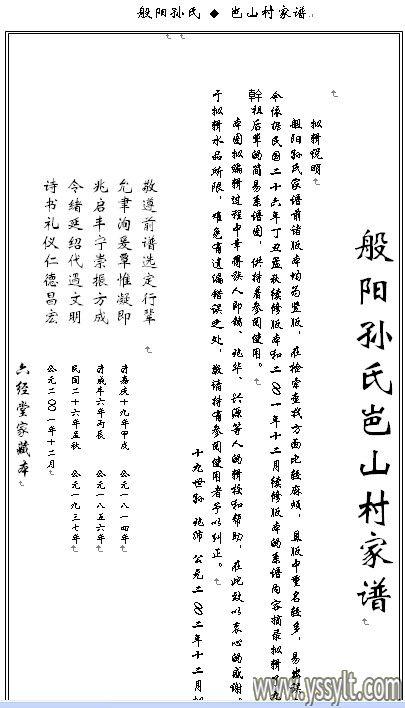 般阳孙氏 ◆ 岜山村家谱
般阳孙氏岜山村家谱
拟辑说明
般阳孙氏家谱前诸版本均为竖版，在检索查找方面比较麻烦，且版中重名较多，易出误
今依据民国二十六年丁丑孟秋续修版本和二〇〇一年十二月续修版本的系谱内容摘录拟辑了九
幹祖后辈的简易系谱图，供持着参阅使用。
本图拟编辑过程中幸得族人即镐、兆华、兴源等人的辑校和帮助，在此致以衷心的感谢。
于拟辑水品所限，难免有遗编错误之处，敬请持有参阅使用者予以纠正。
十九世孙 兆沛 公元二〇〇二年十二月拟
敬遵前谱选定行辈
允聿洵爰覃惟凝即
兆启丰宁崇振方成
令绪延绍代遇文明
诗书礼仪仁德昌宏
清嘉庆十九年甲戌 公元一八一四年
清咸丰六年丙辰 公元一八五六年
民国二十六年孟秋 公元一九三七年
公元二〇〇一年十二月
六经堂家藏本
www.yssylt.com